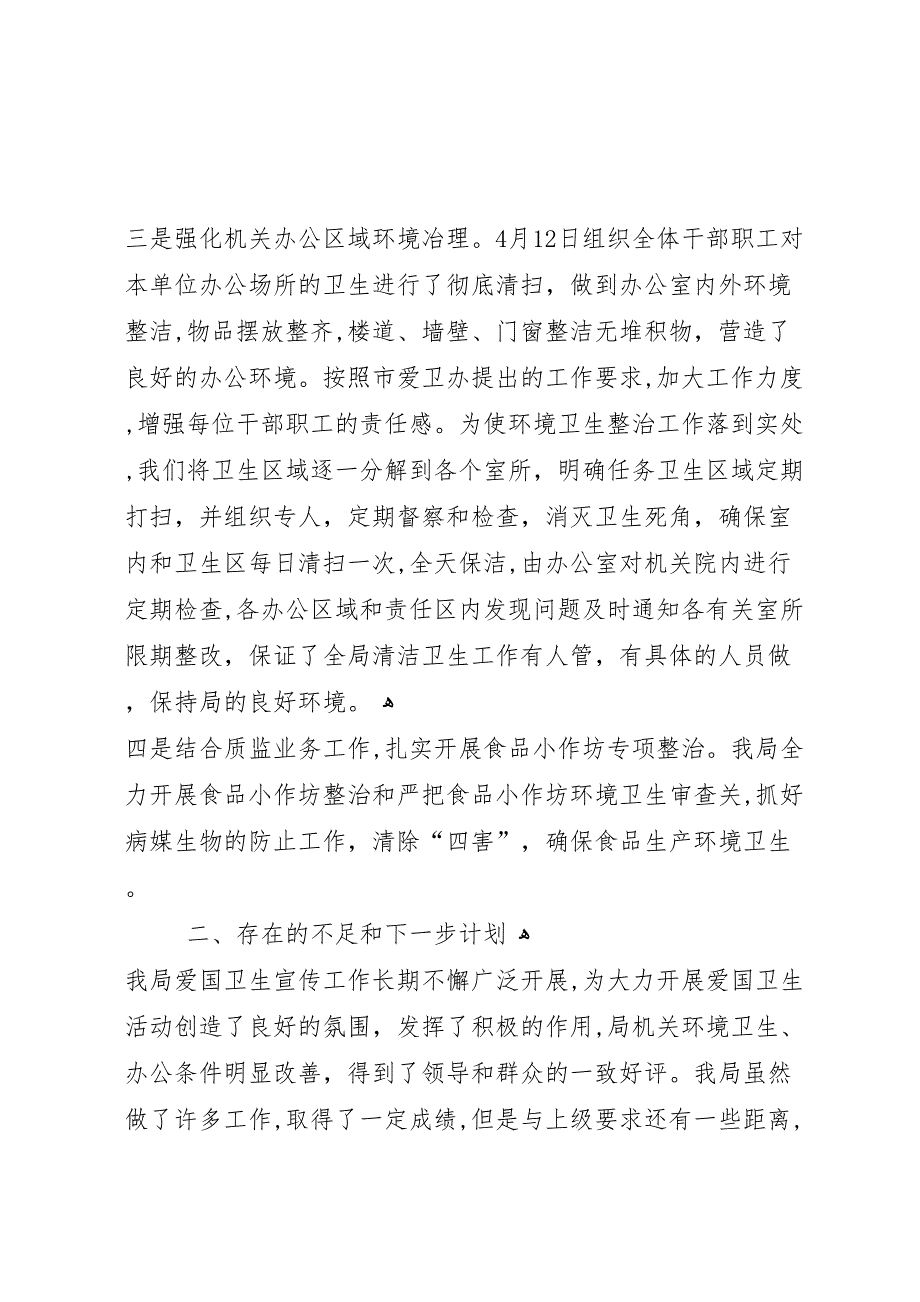 三是强化机关办公区域环境冶理。4月12日组织全体干部职工对
本单位办公场所的卫生进行了彻底清扫，做到办公室内外环境
整洁,物品摆放整齐,楼道、墙壁、门窗整洁无堆积物，营造了
良好的办公环境。按照市爱卫办提出的工作要求,加大工作力度
,增强每位干部职工的责任感。为使环境卫生整治工作落到实处
,我们将卫生区域逐一分解到各个室所，明确任务卫生区域定期
打扫，并组织专人，定期督察和检查，消灭卫生死角，确保室
内和卫生区每日清扫一次,全天保洁,由办公室对机关院内进行
定期检查,各办公区域和责任区内发现问题及时通知各有关室所
限期整改，保证了全局清洁卫生工作有人管，有具体的人员做
，保持局的良好环境。 ﻫ
四是结合质监业务工作,扎实开展食品小作坊专项整治。我局全
力开展食品小作坊整治和严把食品小作坊环境卫生审查关,抓好
病媒生物的防止工作，清除“四害”，确保食品生产环境卫生
。
二、存在的不足和下一步计划 ﻫ
我局爱国卫生宣传工作长期不懈广泛开展,为大力开展爱国卫生
活动创造了良好的氛围，发挥了积极的作用,局机关环境卫生、
办公条件明显改善，得到了领导和群众的一致好评。我局虽然
做了许多工作,取得了一定成绩,但是与上级要求还有一些距离,